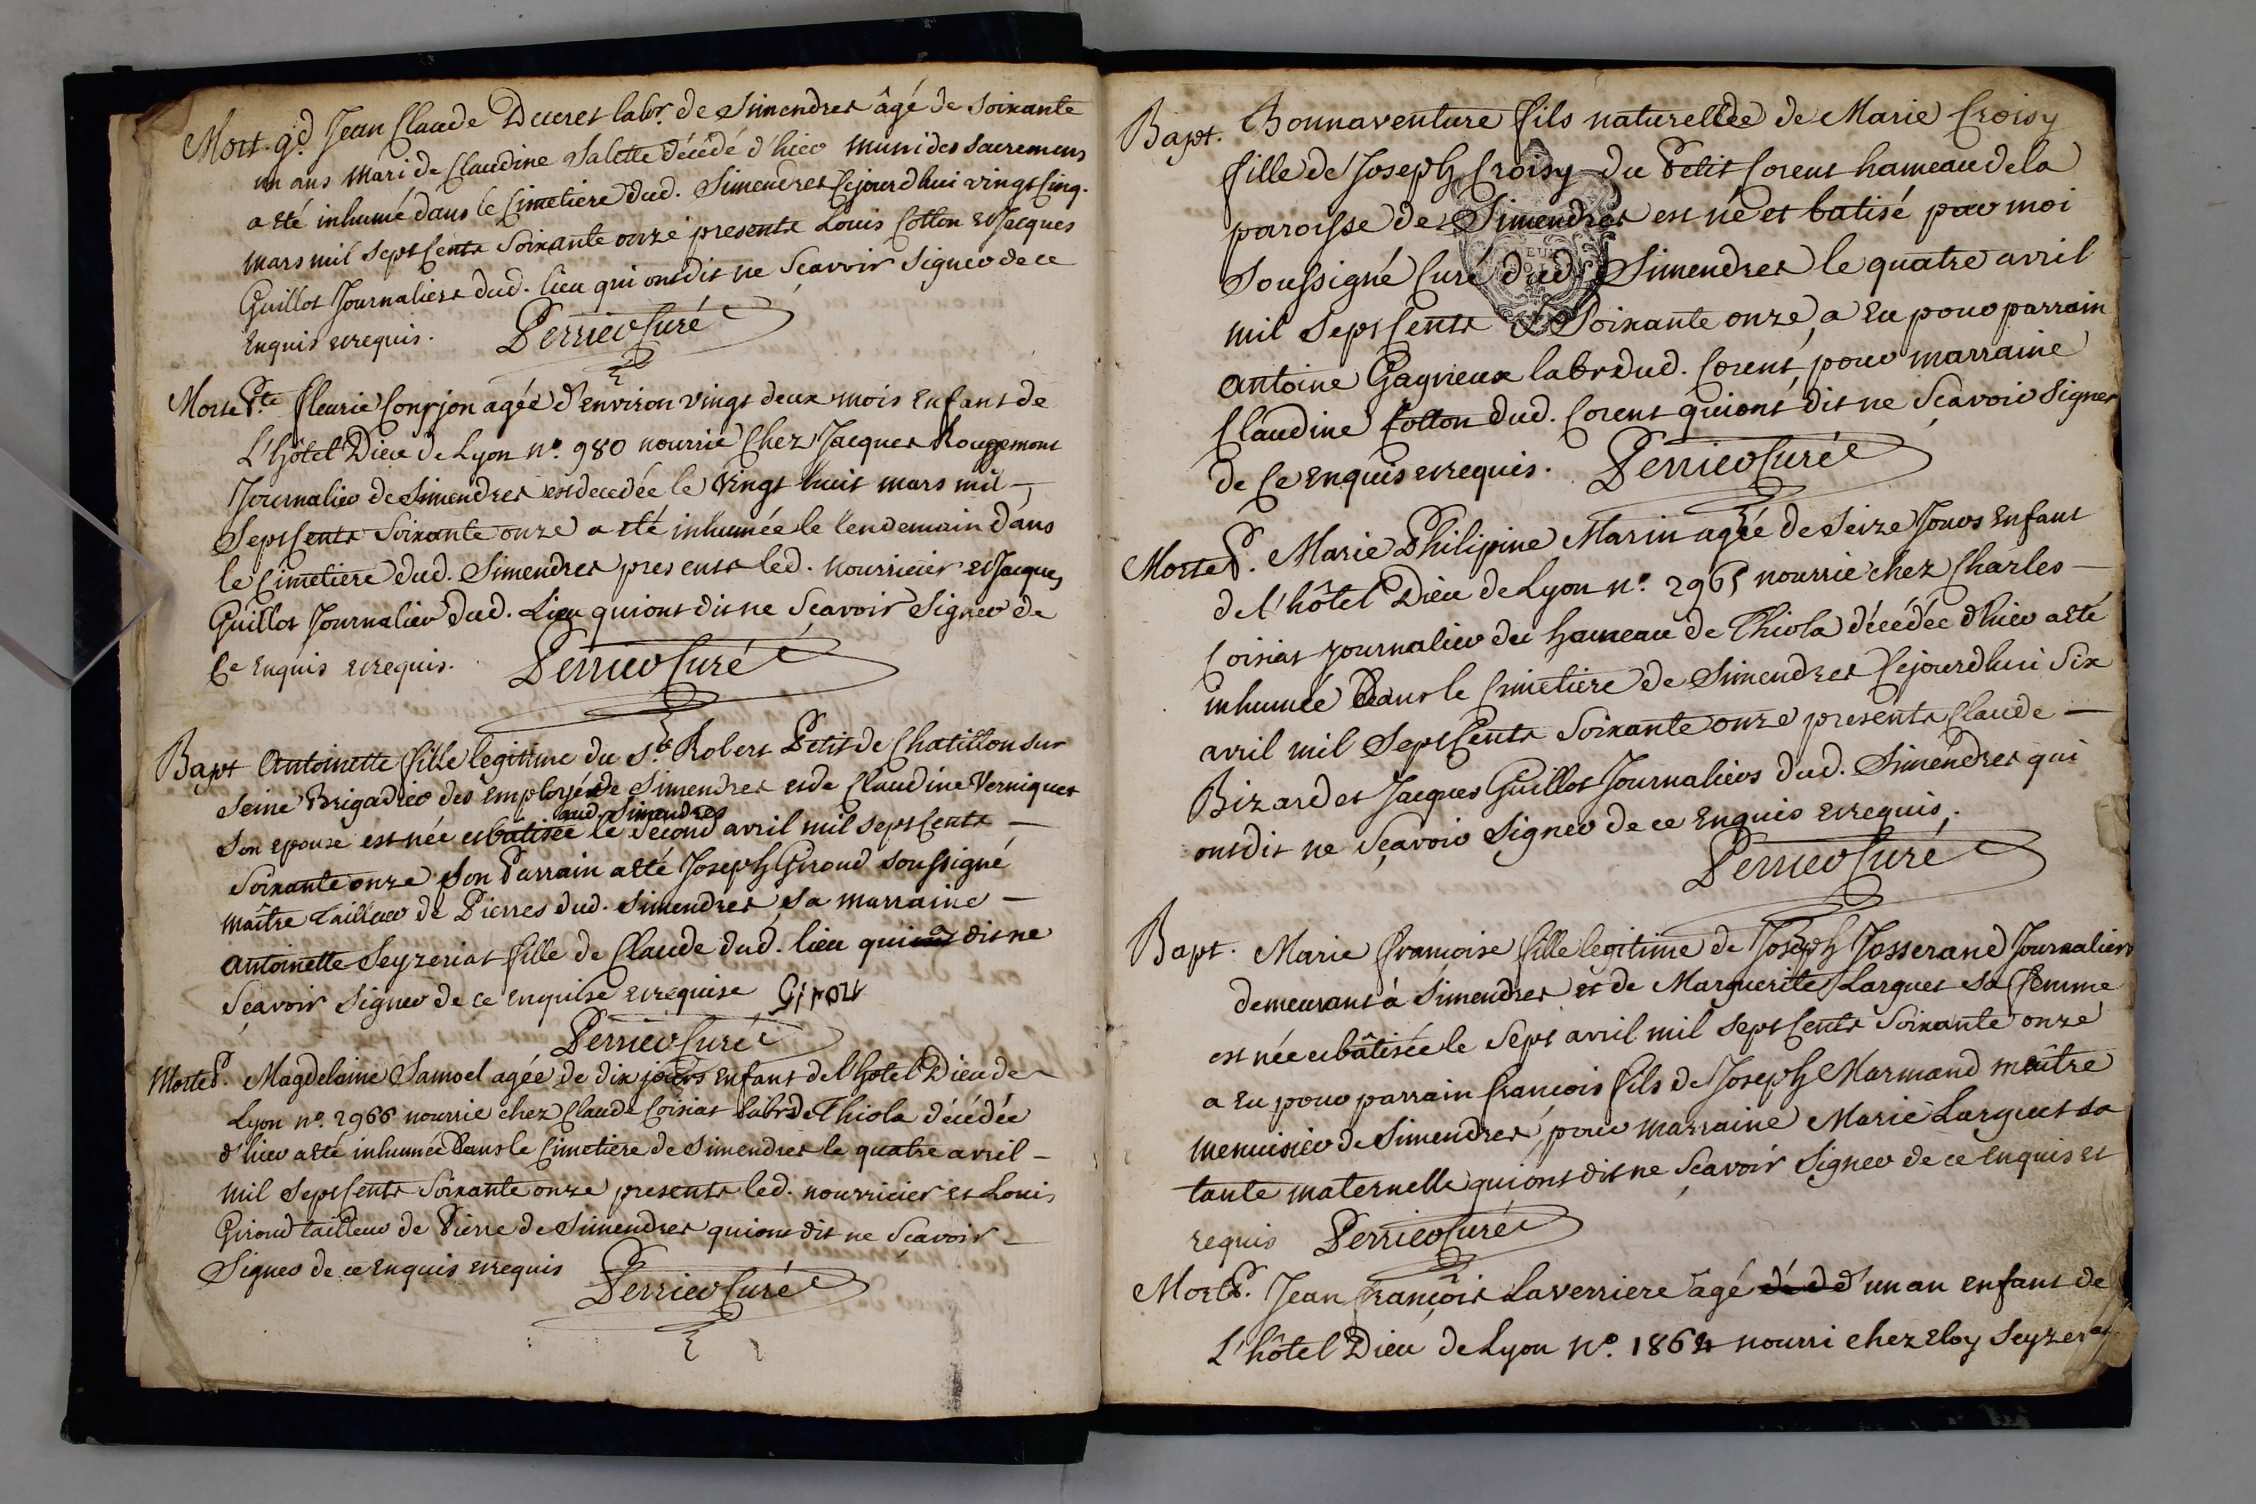 Mort gd. Jean Claude Deceret labr. de Simendres âgé de Soixante
un ans mari de Claudine Salette décédé d'hier muni des sacremens
a eté inhumé dans le Cimetiere dud. Simendres Cejourdhui vingt Cinq.
mars mil Sept Cents Soixante onze presents Louis Cotton et Jacques
Guillot Journaliers dud. lieu qui ont dit ne Sçavoir Signer de ce
Enquis et requis. Perrier Curé
Morte Pte. fleurie Conrjon agée d'environ vingt deux mois Enfant de
L'hôtel Dieu de Lyon n°. 980 nourrie Chez Jacques Rougemont
Journalier de Simendres est decedée le vingt huit mars mil
Sept Cents Soixante onze a eté inhumée le lendemain dans
le Cimetiere dud. Simendres presents led. nourricier et Jacques
Guillot Journalier dud. Lieu qui ont dit ne Sçavoir Signer de
Ce Enquis et requis. Perrier Curé
Bapt Antoinette fille legitime du Sr. Robert Petit de Chatillon sur
Seine Brigadier des Employés de Simendres et de Claudine Verniquet
aud. Simendres
Son epouse est née et batisée le Second avril mil Sept Cents
Soixante onze Son Parrain a eté Joseph Giroud soussigné
maître Tailleur de Pierres dud. Simendres Sa marraine
Antoinette Seyzeriat fille de Claude dud. lieu qui dit ne
Sçavoir Signer de ce enquise et requise Girou
Perrier Curé
Morte P. Magdelaine Samoel agée de dix jours Enfant de l'hotel Dieu de
Lyon n°. 2966 nourrie chez Claude Coisiat labr. de Thiola décédée
d'hier a eté inhumée Dans le Cimetiere de Simendres le quatre avril
mil Sept Cents Soixante onze presents led. nourricier et Louis
Giroud tailleur de Pierre de Simendres qui ont dit ne Sçavoir
Signer de ce Enquis et requis Perrier Curé
Bapt. Bonnaventure fils naturelle de Marie Croisy
fille de Joseph Croisy du Petit Corent hameau de la
paroisse de Simendres est né et batisé par moi
Soussigné Curé dud. Simendres le quatre avril
mil Sept Cents Soixante onze, a Eu pour parrain
Antoine Gagneux labr dud. Corent, pour marraine
Claudine Cotton dud. Corent qui ont dit ne Sçavoir Signer
de Ce Enquis et requis. Perrier Curé
Morte P. Marie Philipine Marin agée de Seize Jours Enfant
de l'hôtel Dieu de Lyon n°. 2965 nourrie chez Charles
Coisiat Journalier du hameau de Thiola décédée d'hier a eté
inhumée Dans le Cimetiere de Simendres Cejourdhui Six
avril mil Sept Cents Soixante onze presents Claude
Bizard et Jacques Guillot Journaliers dud. Simendres qui
ont dit ne Sçavoir Signer de ce Enquis et requis.
Perrier Curé
Bapt. Marie françoise fille legitime de Joseph Josserand Journalier
demeurant à Simendres et de Marguerite Larguet Sa femme
est née et bâtisée le Sept avril mil Sept Cents Soixante onze
a Eu pour parrain françois fils de Joseph Marmand maître
menuisier de Simendres, pour marraine Marie Larguet sa
tante maternelle qui ont dit ne Sçavoir Signer de ce Enquis et
requis Perrier Curé
Mort P. Jean françois Laverriere agé d'un an enfant de
L'hôtel Dieu de Lyon N°. 1864 nourri chez Eloy Seyzeriat